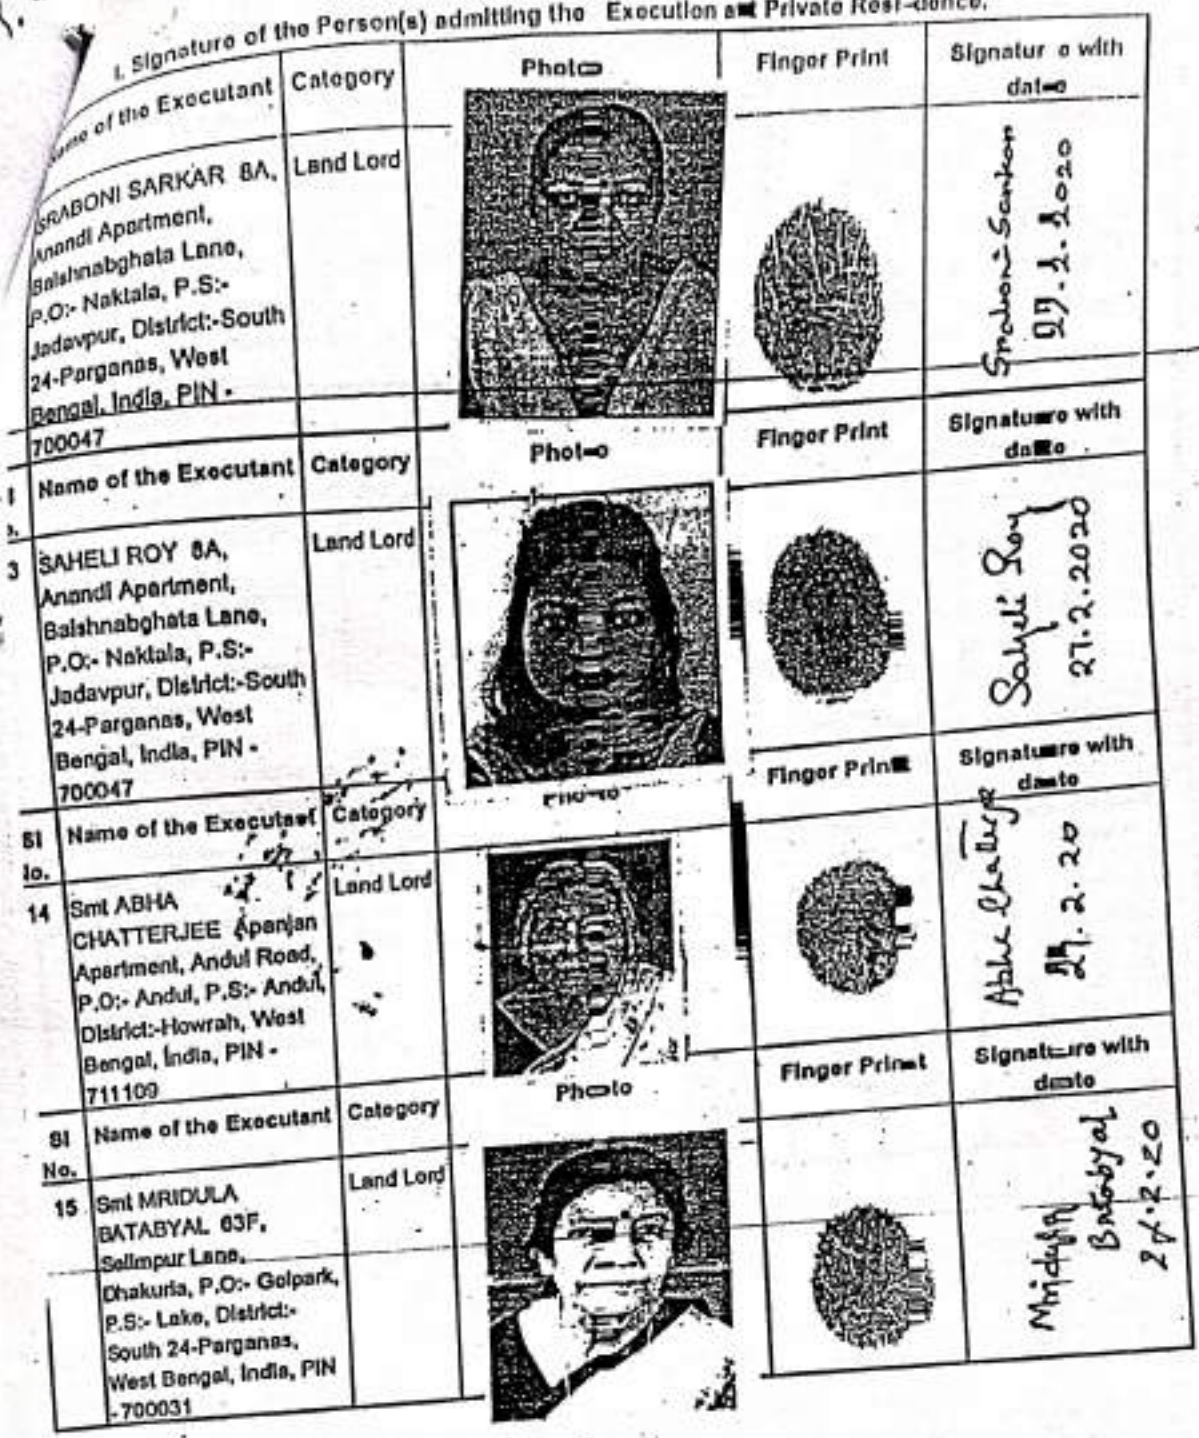 I. Signature of the Person(s) admitting the Execution at Private Residence.
Name of the Executant Category Photo Finger Print Signature with date
SRABONI SARKAR 8A, Land Lord
Anandi Apartment,
Baishnabghata Lane,
P.O:- Naktala, P.S:-
Jadavpur, District:-South
24-Parganas, West
Bengal, India, PIN -
700047
Sraboni Sarkar
27.2.2020
Name of the Executant Category Photo Finger Print Signature with date
3 SAHELI ROY 8A, Land Lord
Anandi Apartment,
Baishnabghata Lane,
P.O:- Naktala, P.S:-
Jadavpur, District:-South
24-Parganas, West
Bengal, India, PIN -
700047
Saheli Roy
27.2.2020
Sl No. Name of the Executant Category Photo Finger Print Signature with date
14 Smt ABHA Land Lord
CHATTERJEE Apanjan
Apartment, Andul Road,
P.O:- Andul, P.S:- Andul,
District:-Howrah, West
Bengal, India, PIN -
711109
Abha Chatterjee
27.2.20
Sl No. Name of the Executant Category Photo Finger Print Signature with date
15 Smt MRIDULA Land Lord
BATABYAL 63F,
Selimpur Lane,
Dhakuria, P.O:- Golpark,
P.S:- Lake, District:-
South 24-Parganas,
West Bengal, India, PIN
- 700031
Mridula
Batabyal
27.2.20